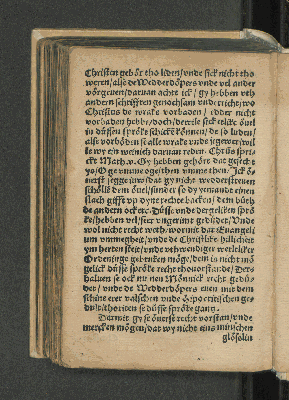 Christen gehör tho liden/ vnde sick nicht tho
weren/ alse de Wedderdöpers vnde vel ander
vörgeuen/ daruan achte ick/ gy hebben vth
andern schrifften genochsam vnderrichte/ wo
Christus de wrake vorbaden/ edder nicht
vorbaden hebbe/ doch/ dewile
sick in düssen spröke schicke können/ de so luden/
alse vorböden se alle wrake vnde jegewer/ wil
le wy ein weinich daruan reden. Christus spre-
cke Math. v. Gy hebben gehört dat gesecht
ys/ Oge vmme oge/ thene vmme thene. Ick
segge juw/ dat gy nicht wedderstreuen
schölle dem öuel/ sünder so dy yemande einen
slach gifft vp dyne rechte backen/ dem büth
de andern ock etc. Düsse vnde dergeliken sprö
ke/ hebben vel/ seer vngerimet gedüdet/ Vnde
wol nicht recht weth/ wormit dat Euangeli
um vmmegheit/ vnde de Christlike hillicheit
ym herten steit/ vnde vthwendiger werltliker
Ordeninge gebruken möge/ dem is nicht mö
gelick düsse spröke recht thouorstande/ Der-
haluen se ock nen Mönnick recht gedü-
det/ vnde de Wedderdöpers euen mit dem
schine erer valschen vnde hipocritischen ge-
dult/ thoriten se düsse spröke gantz.
Darmit gy se öuerst recht vorstan/ vnde
mercken mögen/ dat wy nicht eins minschen
glöselin